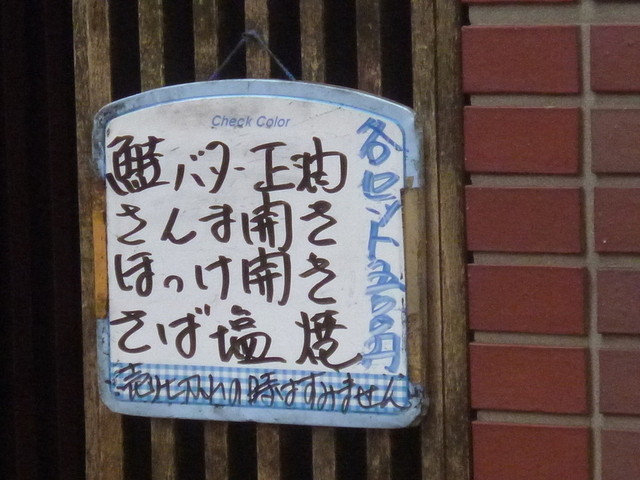 Check Color
鮭バター正油
さんま開き
ほっけ開き
さば塩焼
売り切れの時はすみません
各セット 円